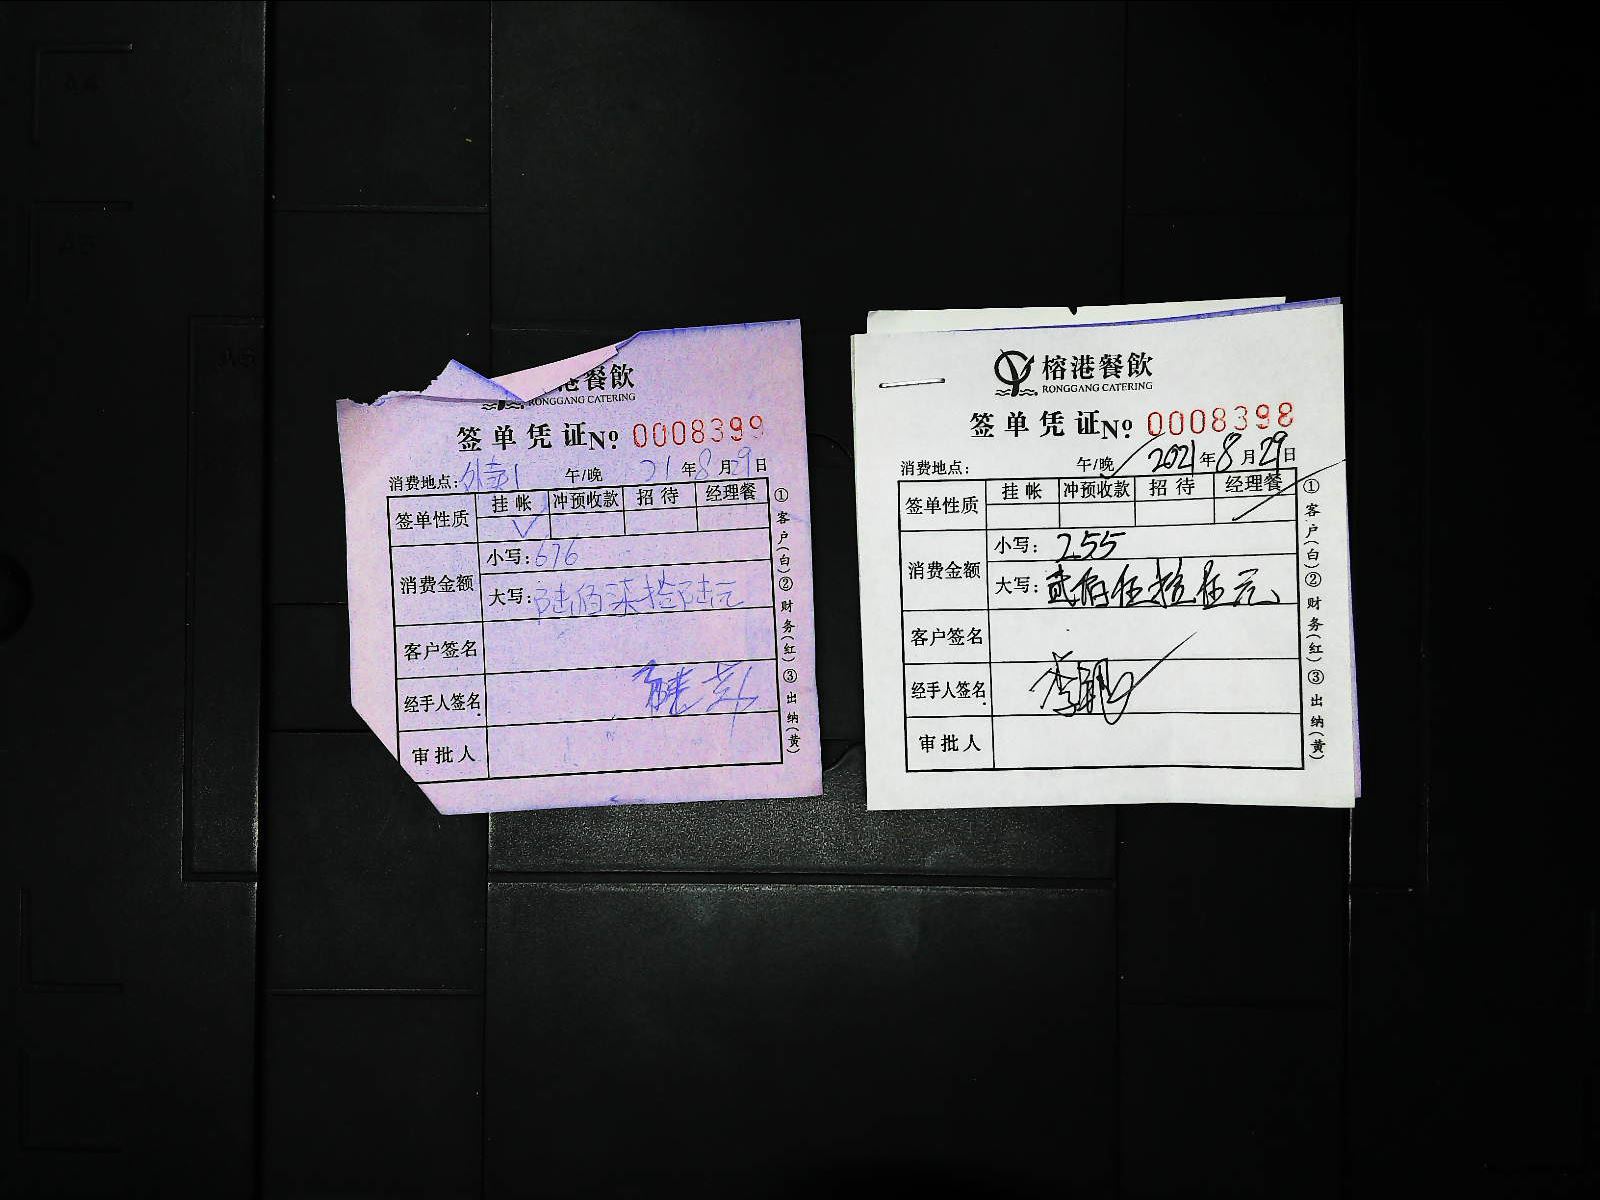 港餐飲
RONGGANG CATERING
签单凭证№ 0008399
消费地点:外卖1 午/晚 21年8月29日
签单性质 挂帐 冲预收款 招待 经理餐
✓
消费金额 小写:676
大写:陆佰柒拾陆元
客户签名
经手人签名
审批人
①客户(白)②财务(红)③出纳(黄)
榕港餐飲
RONGGANG CATERING
签单凭证№ 0008398
消费地点: 午/晚 2021年8月29日
签单性质 挂帐 冲预收款 招待 经理餐
消费金额 小写:255
大写:贰佰伍拾伍元
客户签名
经手人签名
审批人
①客户(白)②财务(红)③出纳(黄)